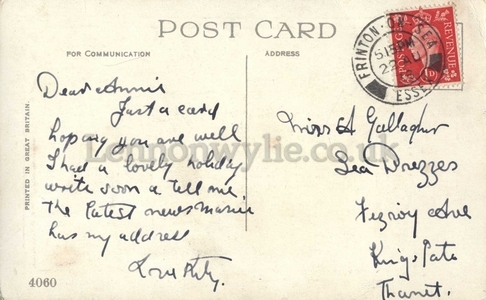 POST CARD
FOR COMMUNICATION
ADDRESS
FRINTON-ON-SEA
5 15 PM
ESSEX
POSTAGE
REVENUE
1D
Dear Annie
Just a card
hoping you are well
I had a lovely holiday
write soon & tell me
the latest news Marie
has my address
Love Kitty.
Miss A Gallagher
Sea Breezes
Fitzroy Ave
Kingsgate
Thanet.
PRINTED IN GREAT BRITAIN.
4060
Lennonwylie.co.uk